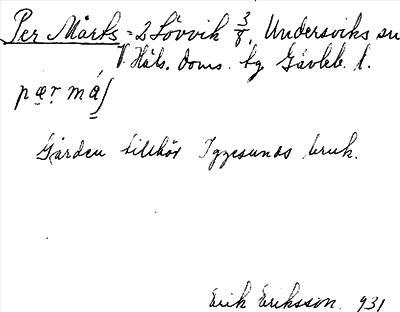 Per Mårts = 2 Lövvik 3/8, Undersviks sn
V. Häls. doms. bg Gävleb. l.
pær má̱ʃ
Gården tillhör Iggesunds bruk.
Erik Eriksson. 931